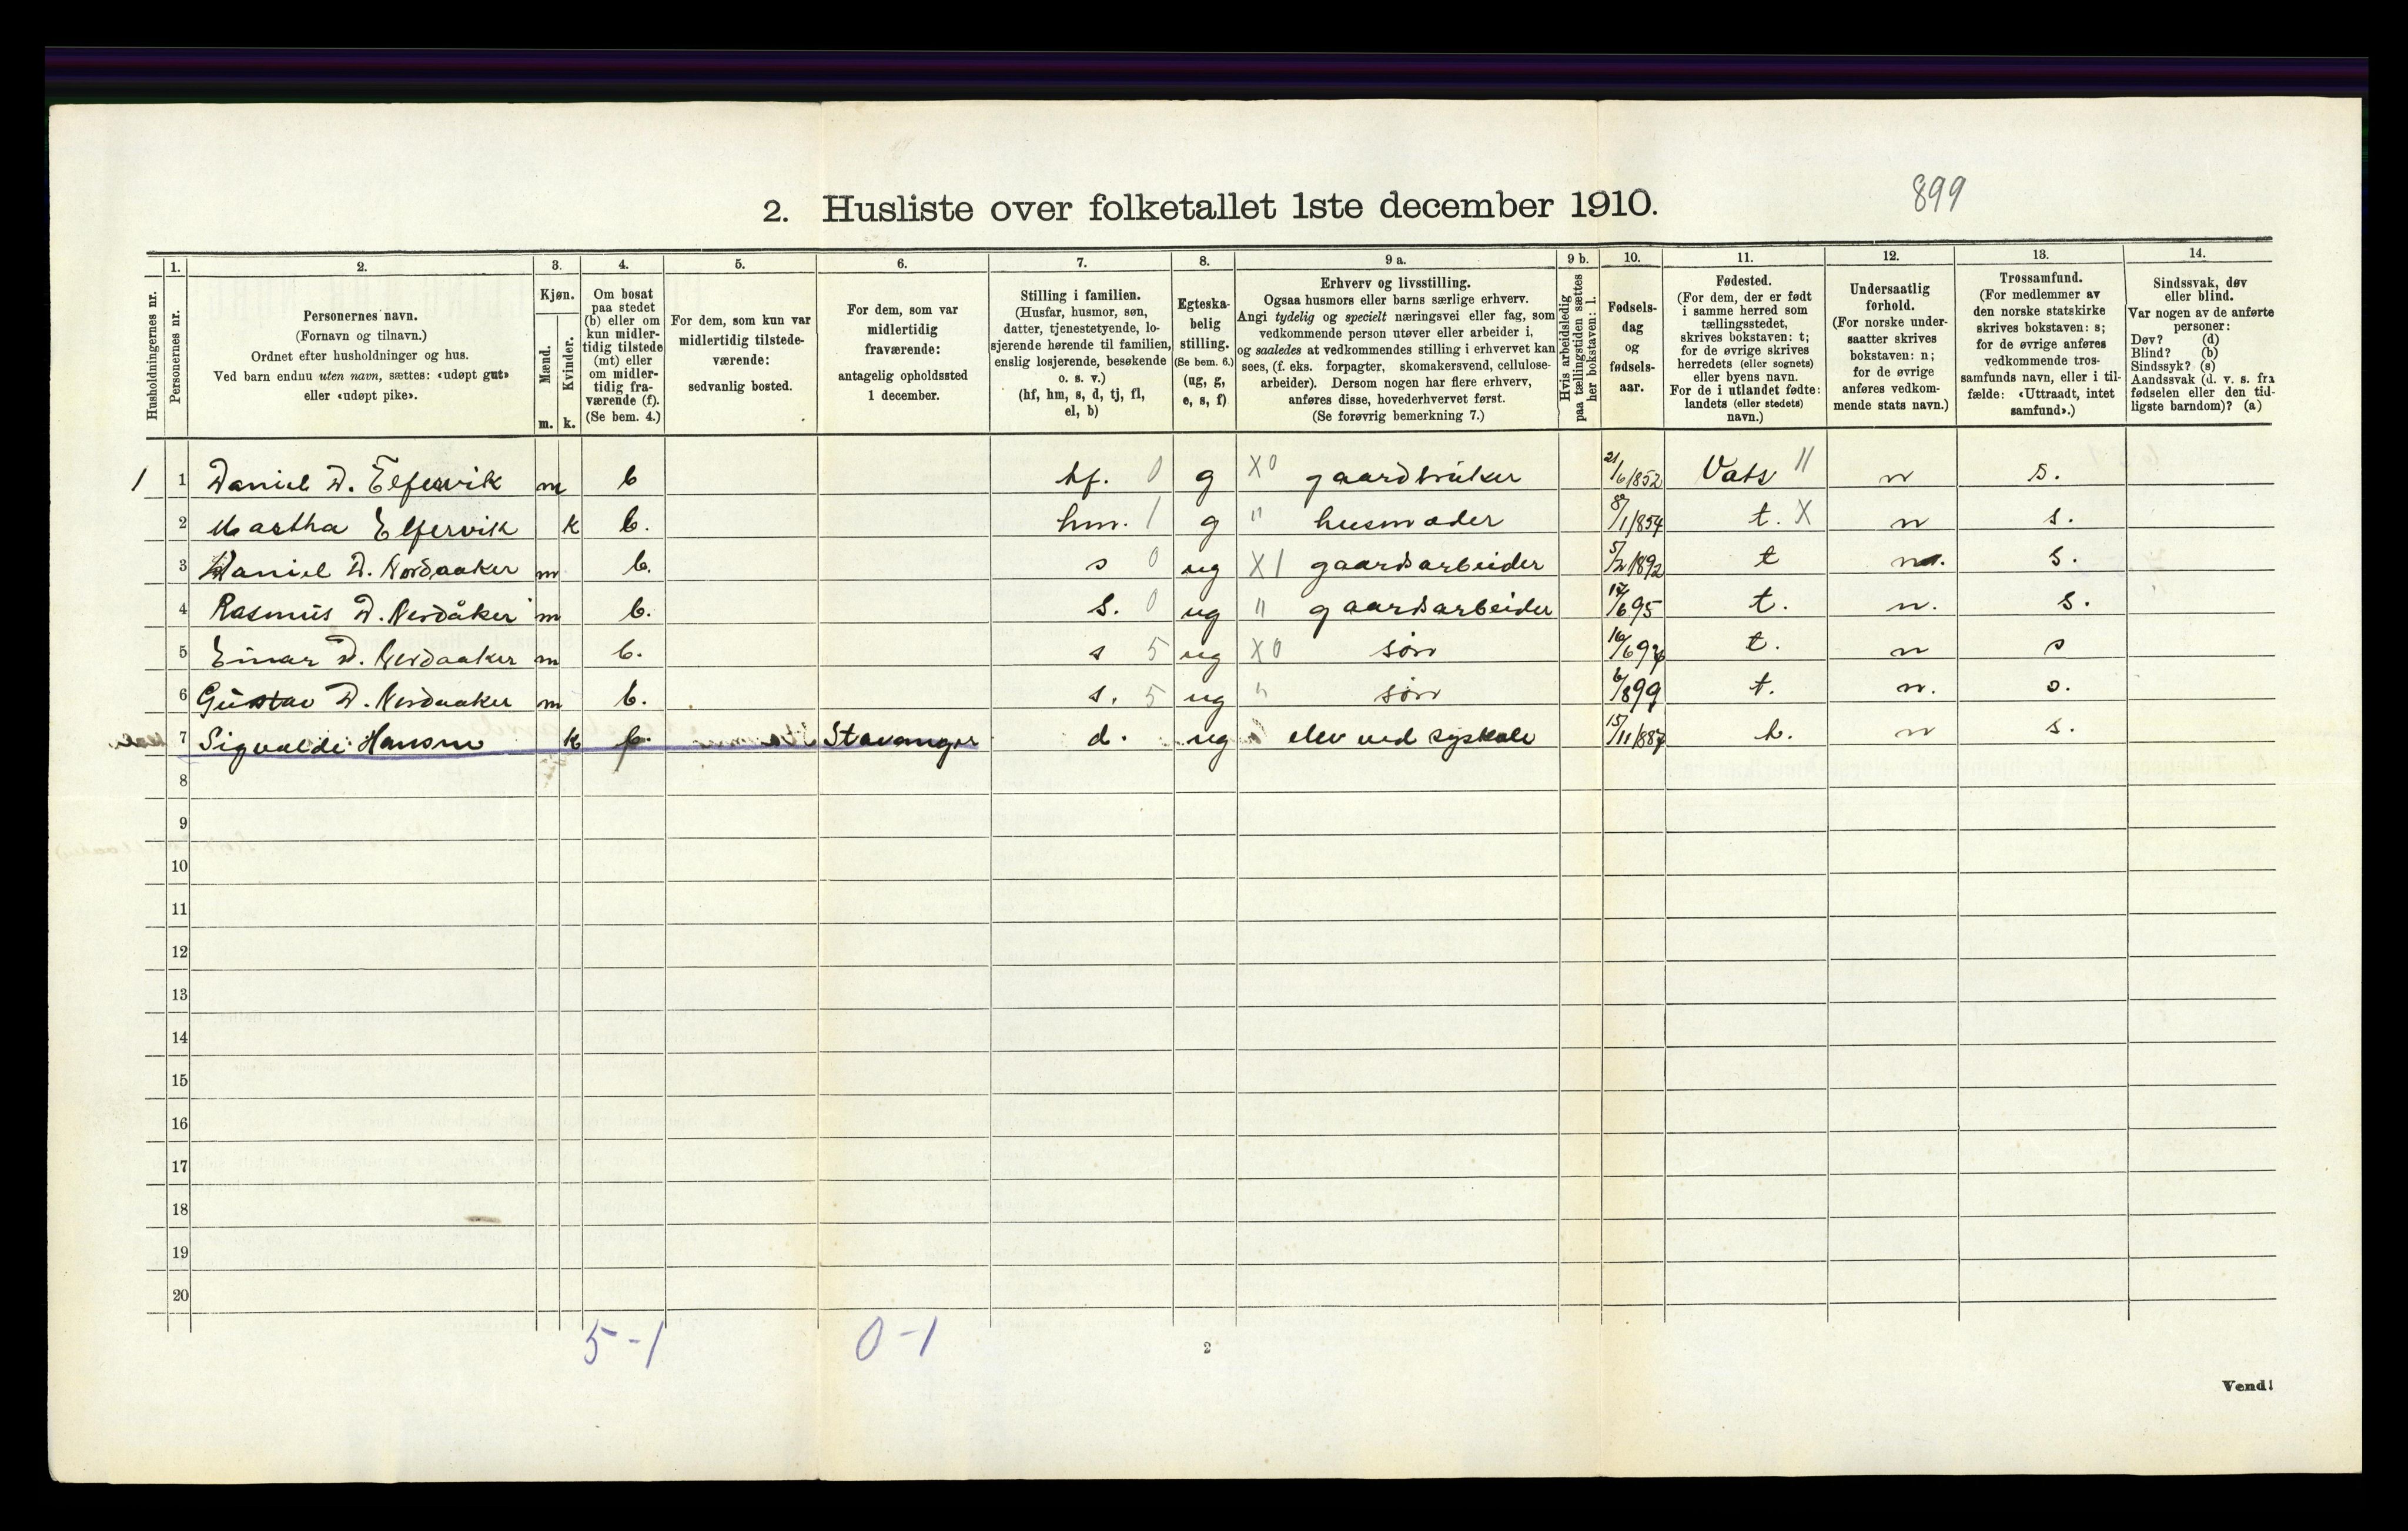 899
2. Husliste over folketallet 1ste december 1910.
Husholdningernes nr.
1.
Personernes nr.
2.
Personernes navn.
(Fornavn og tilnavn.)
Ordnet efter husholdninger og hus.
Ved barn endnu uten navn, sættes: «udøpt gut»
eller «udøpt pike».
3.
Kjøn.
Mænd.
Kvinder.
m. k.
4.
Om bosat
paa stedet
(b) eller om
kun midler-
tidig tilstede
(mt) eller
om midler-
tidig fra-
værende (f).
(Se bem. 4.)
5.
For dem, som kun var
midlertidig tilstede-
værende:
sedvanlig bosted.
6.
For dem, som var
midlertidig
fraværende:
antagelig opholdssted
1 december.
7.
Stilling i familien.
(Husfar, husmor, søn,
datter, tjenestetyende, lo-
sjerende hørende til familien,
enslig losjerende, besøkende
o. s. v.)
(hf, hm, s, d, tj, fl,
el, b)
8.
Egteska-
belig
stilling.
(Se bem. 6.)
(ug, g,
e, s, f)
9 a.
Erhverv og livsstilling.
Ogsaa husmors eller barns særlige erhverv.
Angi tydelig og specielt næringsvei eller fag, som
vedkommende person utøver eller arbeider i,
og saaledes at vedkommendes stilling i erhvervet kan
sees, (f. eks. forpagter, skomakersvend, cellulose-
arbeider). Dersom nogen har flere erhverv,
anføres disse, hovederhvervet først.
(Se forøvrig bemerkning 7.)
9 b.
Hvis arbeidsledig
paa tællingstiden sættes
her bokstaven: l.
10.
Fødsels-
dag
og
fødsels-
aar.
11.
Fødested.
(For dem, der er født
i samme herred som
tællingsstedet,
skrives bokstaven: t;
for de øvrige skrives
herredets (eller sognets)
eller byens navn.
For de i utlandet fødte:
landets (eller stedets)
navn.)
12.
Undersaatlig
forhold.
(For norske under-
saatter skrives
bokstaven: n;
for de øvrige
anføres vedkom-
mende stats navn.)
13.
Trossamfund.
(For medlemmer av
den norske statskirke
skrives bokstaven: s;
for de øvrige anføres
vedkommende tros-
samfunds navn, eller i til-
fælde: «Uttraadt, intet
samfund».)
14.
Sindssvak, døv
eller blind.
Var nogen av de anførte
personer:
Døv? (d)
Blind? (b)
Sindssyk? (s)
Aandssvak (d. v. s. fra
fødselen eller den tid-
ligste barndom)? (a)
1 1 Daniel D. Elfervik m b hf. 0 g X0 gaardbruker 21/6 1852 Vats 11 n s.
2 Martha Elfervik k b. hm. 1 g " husmoder 8/1 1854 t. X n s.
3 Daniel D. Nordaaker m b. s 0 ug X1 gaardsarbeider 5/2 1892 t n. s.
4 Rasmus D. Nordåker m b. s. 0 ug " gaardsarbeider 17/6 95 t. n. s.
5 Einar D. Nordaaker m b. s 5 ug X0 søn 16/6 97 t. n s
6 Gustav D. Nordaaker m b. s. 5 ug " søn 6/ 899 t. n. s.
7 Sigvalde Hansen k f. Stavanger d. ug elev ved syskole 15/11 1887 t. n s.
8
9
10
11
12
13
14
15
16
17
18
19
20
5-1 0-1
2
Vend!